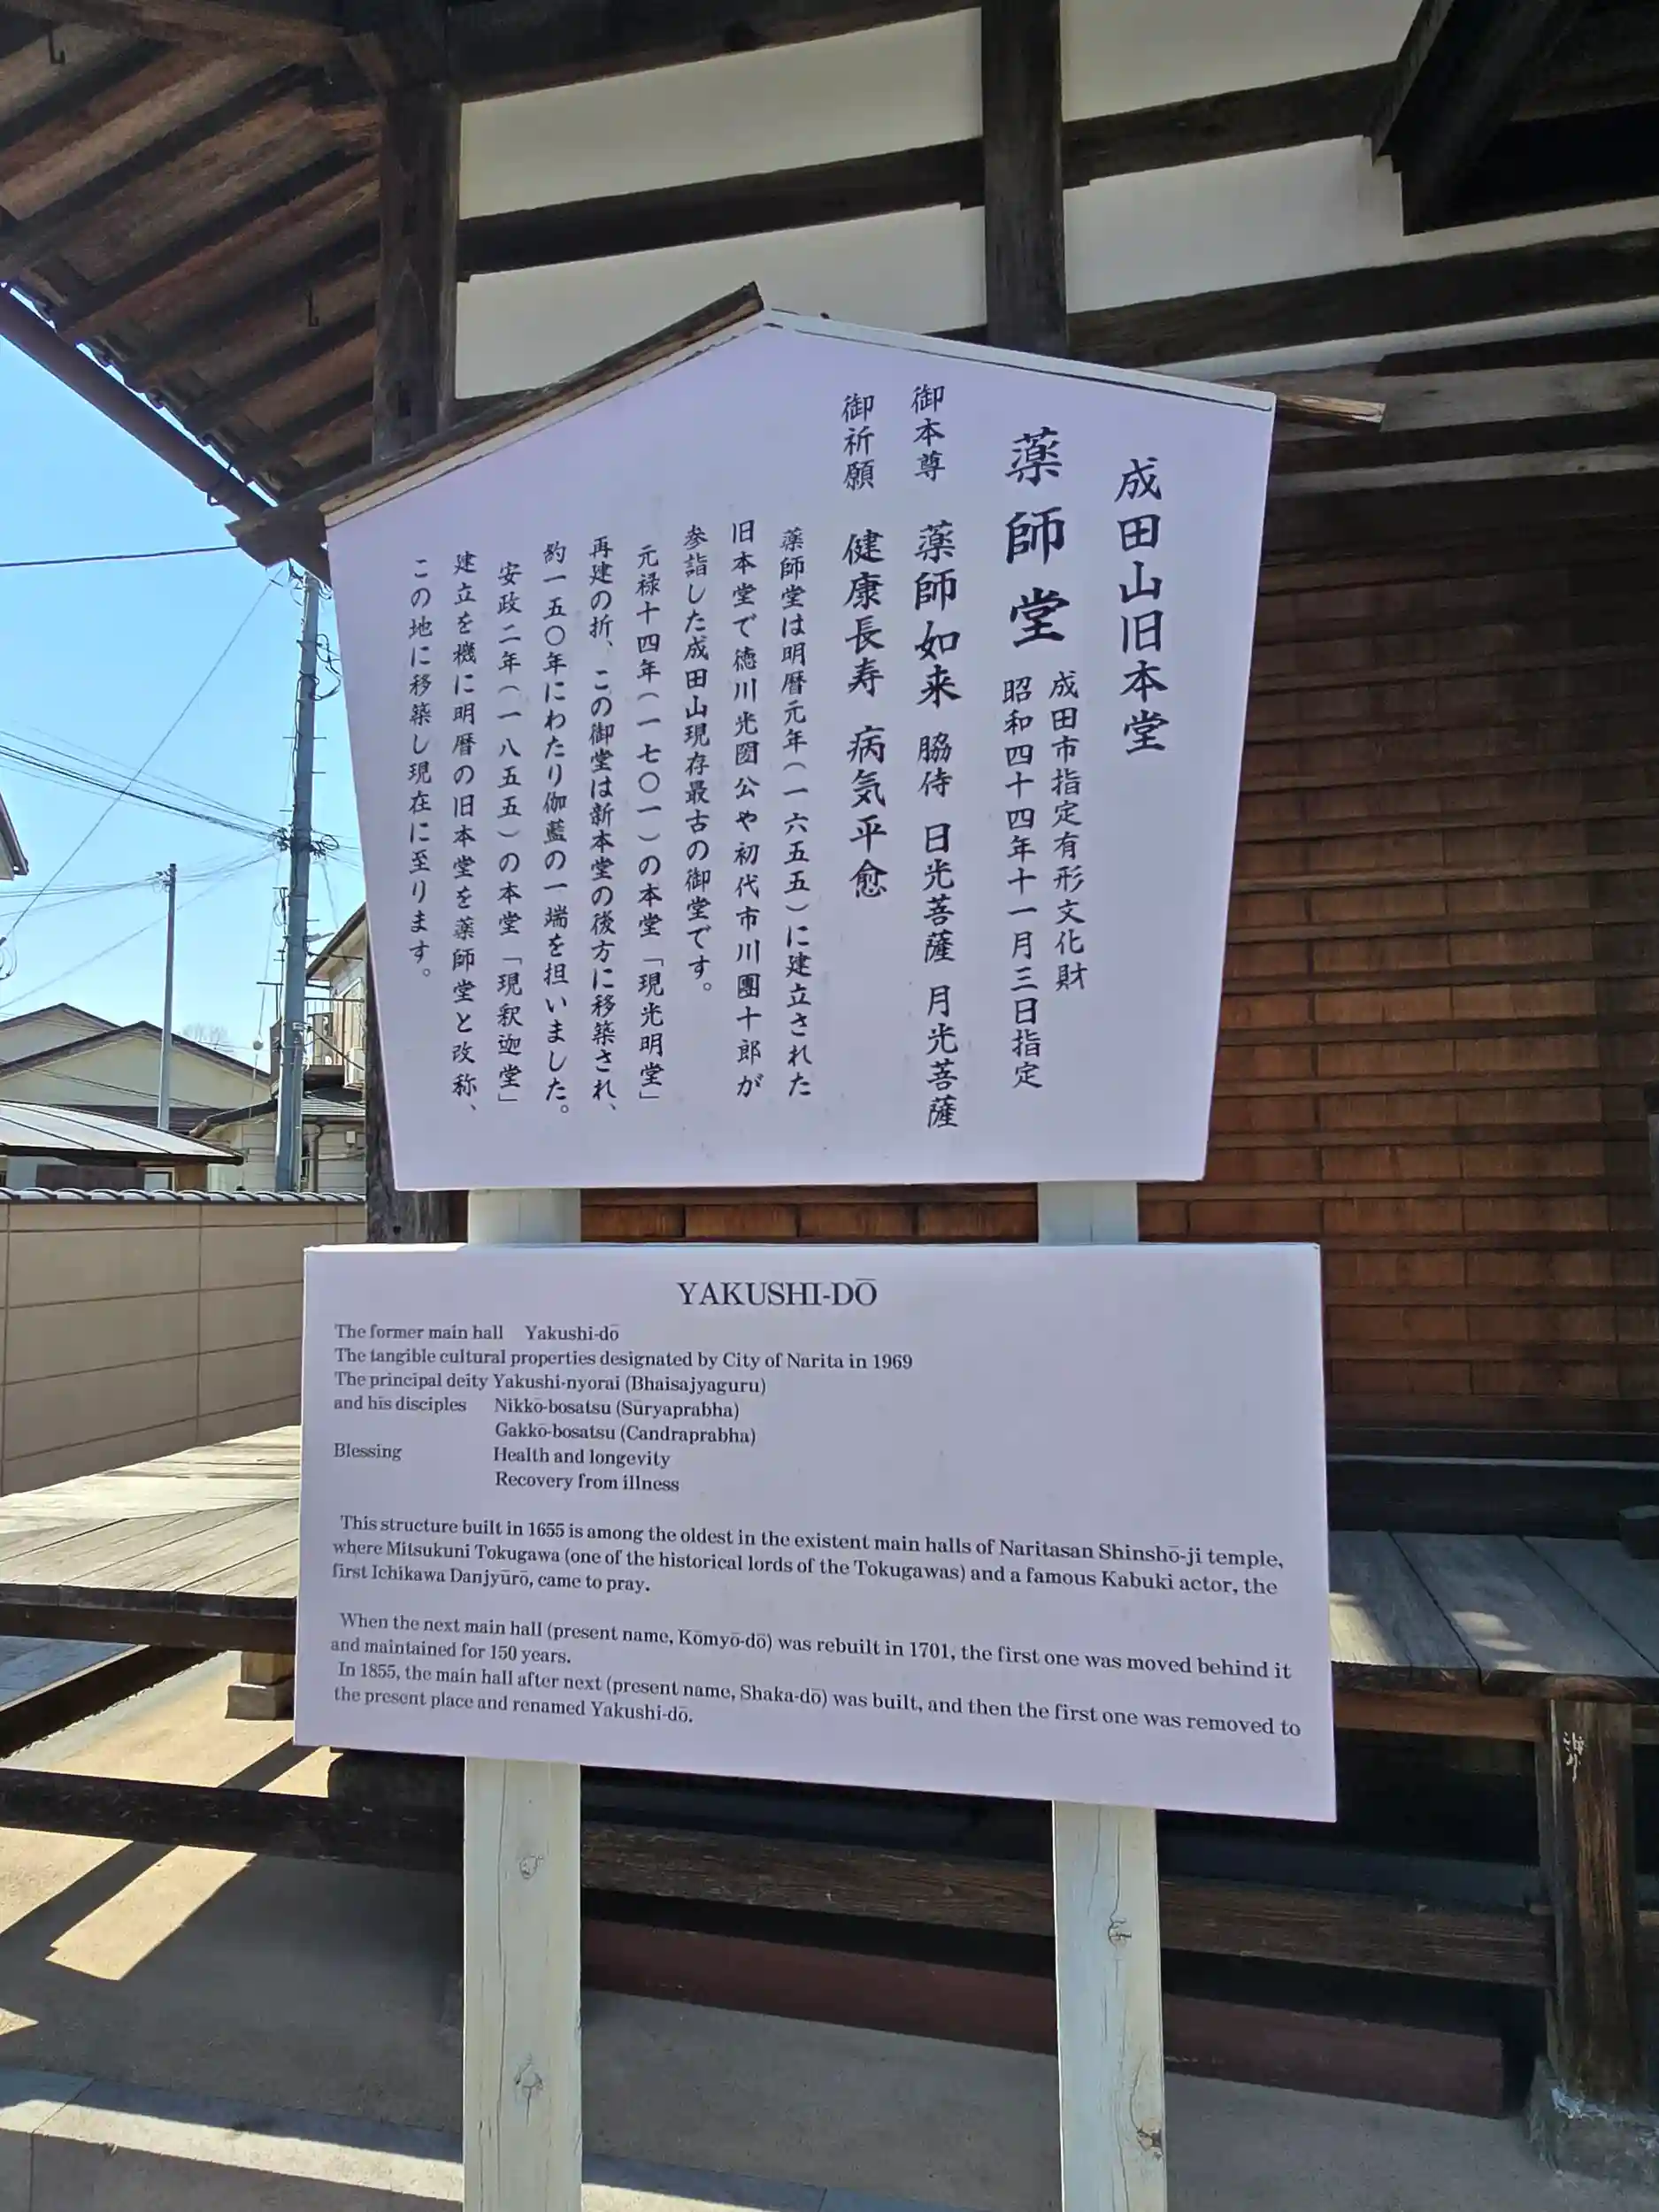 成田山旧本堂
薬師堂
成田市指定有形文化財
昭和四十四年十一月三日指定
御本尊 薬師如来 脇侍 日光菩薩 月光菩薩
御祈願 健康長寿 病気平愈
薬師堂は明暦元年(一六五五)に建立された
旧本堂で徳川光圀公や初代市川團十郎が
参詣した成田山現存最古の御堂です。
元禄十四年(一七〇一)の本堂「現光明堂」
再建の折、この御堂は新本堂の後方に移築され、
約一五〇年にわたり伽藍の一端を担いました。
安政二年(一八五五)の本堂「現釈迦堂」
建立を機に明暦の旧本堂を薬師堂と改称、
この地に移築し現在に至ります。
YAKUSHI-DŌ
The former main hall Yakushi-dō
The tangible cultural properties designated by City of Narita in 1969
The principal deity Yakushi-nyorai (Bhaisajyaguru)
and his disciples Nikkō-bosatsu (Sūryaprabha)
Gakkō-bosatsu (Candraprabha)
Blessing Health and longevity
Recovery from illness
This structure built in 1655 is among the oldest in the existent main halls of Naritasan Shinshō-ji temple,
where Mitsukuni Tokugawa (one of the historical lords of the Tokugawas) and a famous Kabuki actor, the
first Ichikawa Danjyūrō, came to pray.
When the next main hall (present name, Kōmyō-dō) was rebuilt in 1701, the first one was moved behind it
and maintained for 150 years.
In 1855, the main hall after next (present name, Shaka-dō) was built, and then the first one was removed to
the present place and renamed Yakushi-dō.